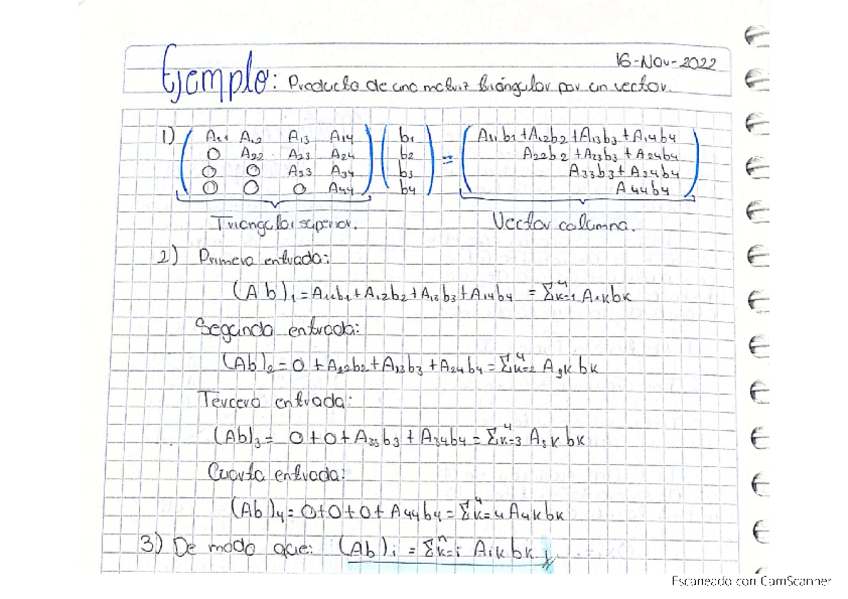 16-Nov-2022
Ejemplo: Producto de una matriz triángular por un vector.
1) (A₁₁ A₁₂ A₁₃ A₁₄) (b₁) = (A₁₁b₁+A₁₂b₂+A₁₃b₃+A₁₄b₄)
(0 A₂₂ A₂₃ A₂₄) (b₂) (A₂₂b₂+A₂₃b₃+A₂₄b₄)
(0 0 A₃₃ A₃₄) (b₃) (A₃₃b₃+A₃₄b₄)
(0 0 0 A₄₄) (b₄) (A₄₄b₄)
Triangular superior. Vector columna.
2) Primera entrada:
(Ab)₁=A₁₁b₁+A₁₂b₂+A₁₃b₃+A₁₄b₄ = Σ⁴k=1 A₁kbk
Segunda entrada:
(Ab)₂=0+A₂₂b₂+A₂₃b₃+A₂₄b₄=Σ⁴k=2 A₂k bk
Tercera entrada:
(Ab)₃= 0+0+A₃₃b₃+A₃₄b₄=Σ⁴k=3 A₃k bk
Cuarta entrada:
(Ab)₄=0+0+0+A₄₄b₄=Σ⁴k=4 A₄kbk
3) De modo que: (Ab)ᵢ = Σⁿk=i Aik bk
Escaneado con CamScanner